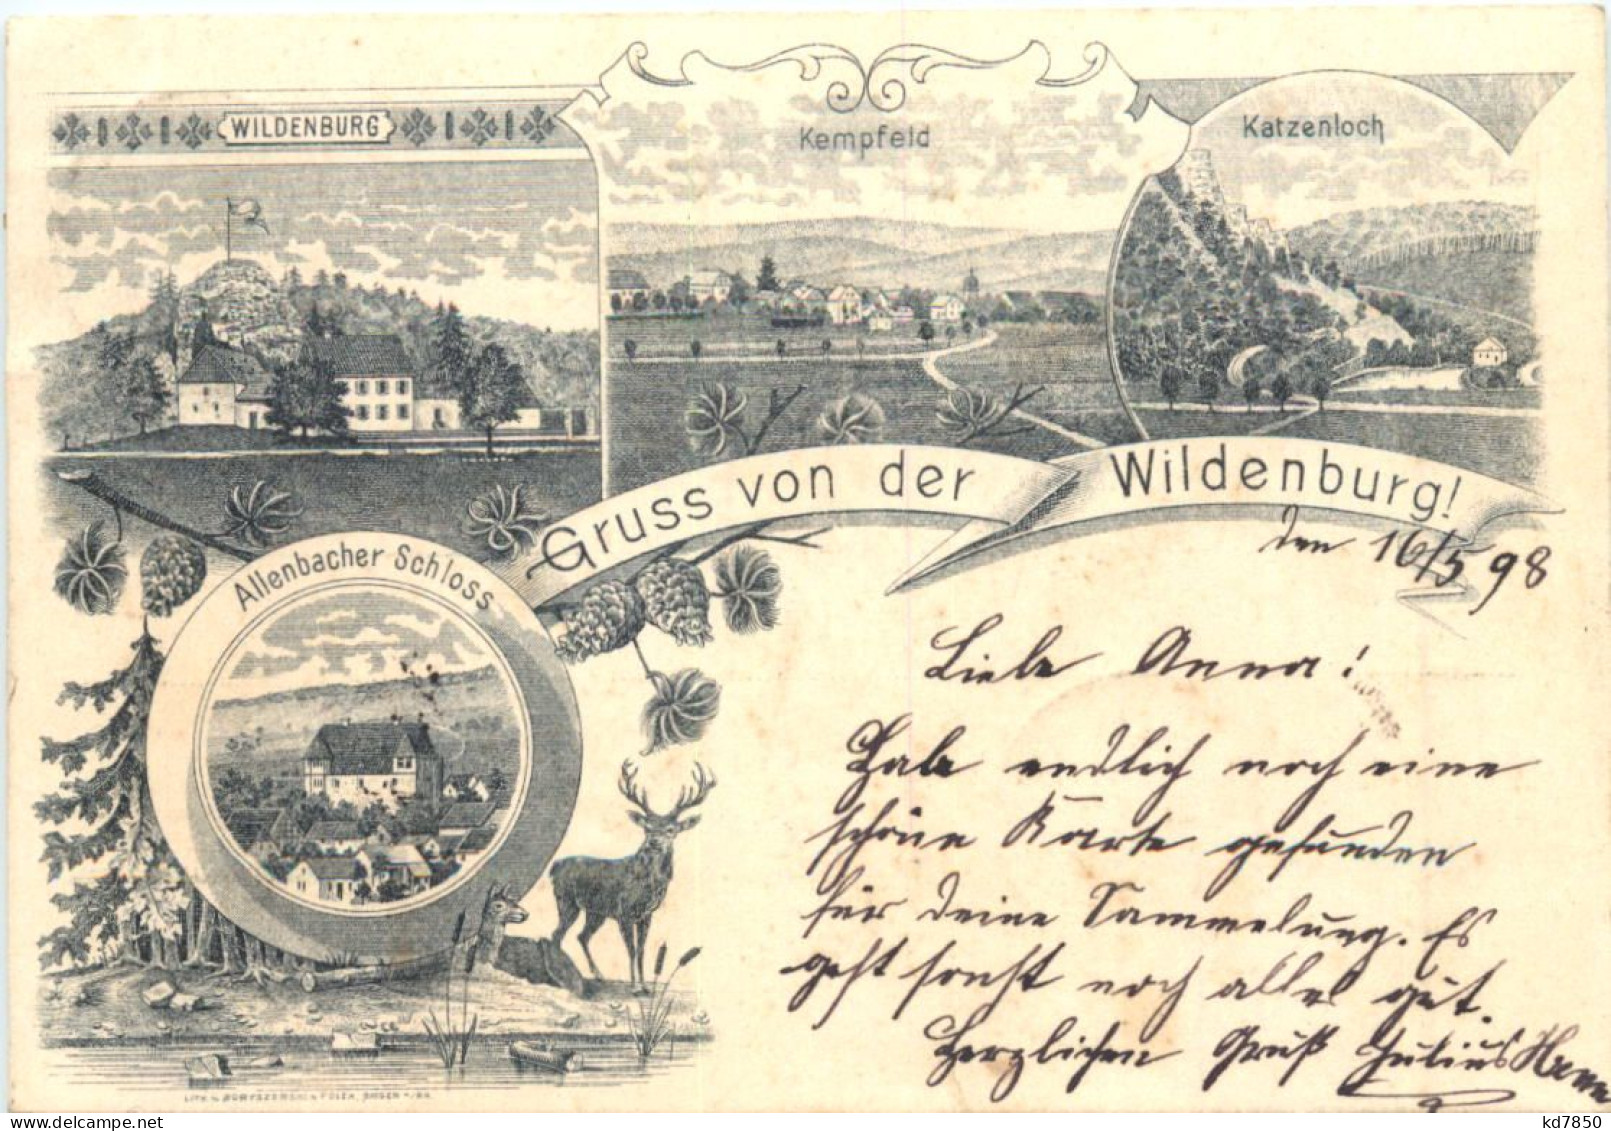 WILDENBURG
Kempfeld
Katzenloch
Gruss von der Wildenburg!
Allenbacher Schloss
den 16/5 98
Liebe Anna!
Habe endlich noch eine
schöne Karte gefunden
für deine Sammelung. Es
geht sonst noch alles gut.
Herzlichen Gruß Julius
LITH. v.
kd7850